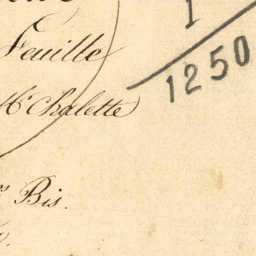 1
Feuille
1250
Mr Chalette
Bis.